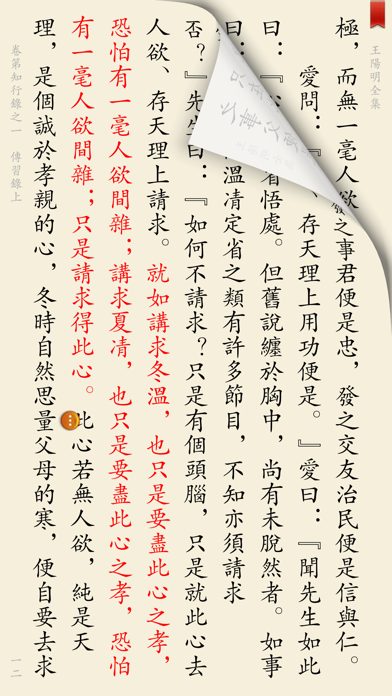 王陽明全集
極，而無一毫人欲發之事君便是忠，發之交友治民便是信與仁。
愛問：『、存天理上用功便是。』愛曰：『聞先生如此
曰：『省悟處。但舊說纏於胸中，尚有未脫然者。如事
曰：溫凊定省之類有許多節目，不知亦須講求
否？』先生曰：『如何不講求？只是有個頭腦，只是就此心去
人欲、存天理上講求。就如講求冬溫，也只是要盡此心之孝，
恐怕有一毫人欲間雜；講求夏凊，也只是要盡此心之孝，恐怕
有一毫人欲間雜；只是講求得此心。此心若無人欲，純是天
理，是個誠於孝親的心，冬時自然思量父母的寒，便自要去求
卷第知行錄之一 傳習錄上
一二